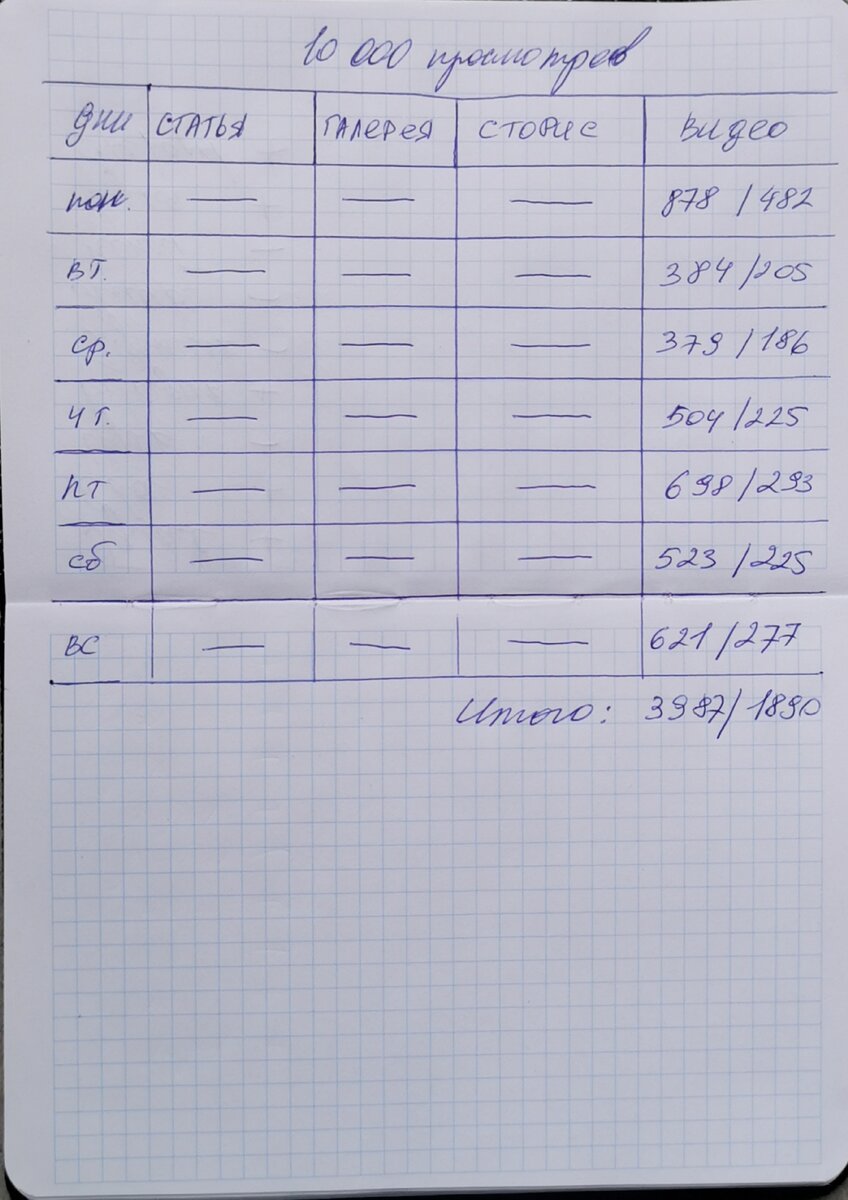 10 000 просмотров
дни СТАТЬЯ ГАЛЕРЕЯ СТОРИС ВИДЕО
пон. — — — 878 / 482
ВТ. — — — 384 / 205
ср. — — — 379 / 186
ЧТ. — — — 504 / 225
ПТ — — — 698 / 293
сб — — — 523 / 225
ВС — — — 621 / 277
Итого: 3987 / 1890